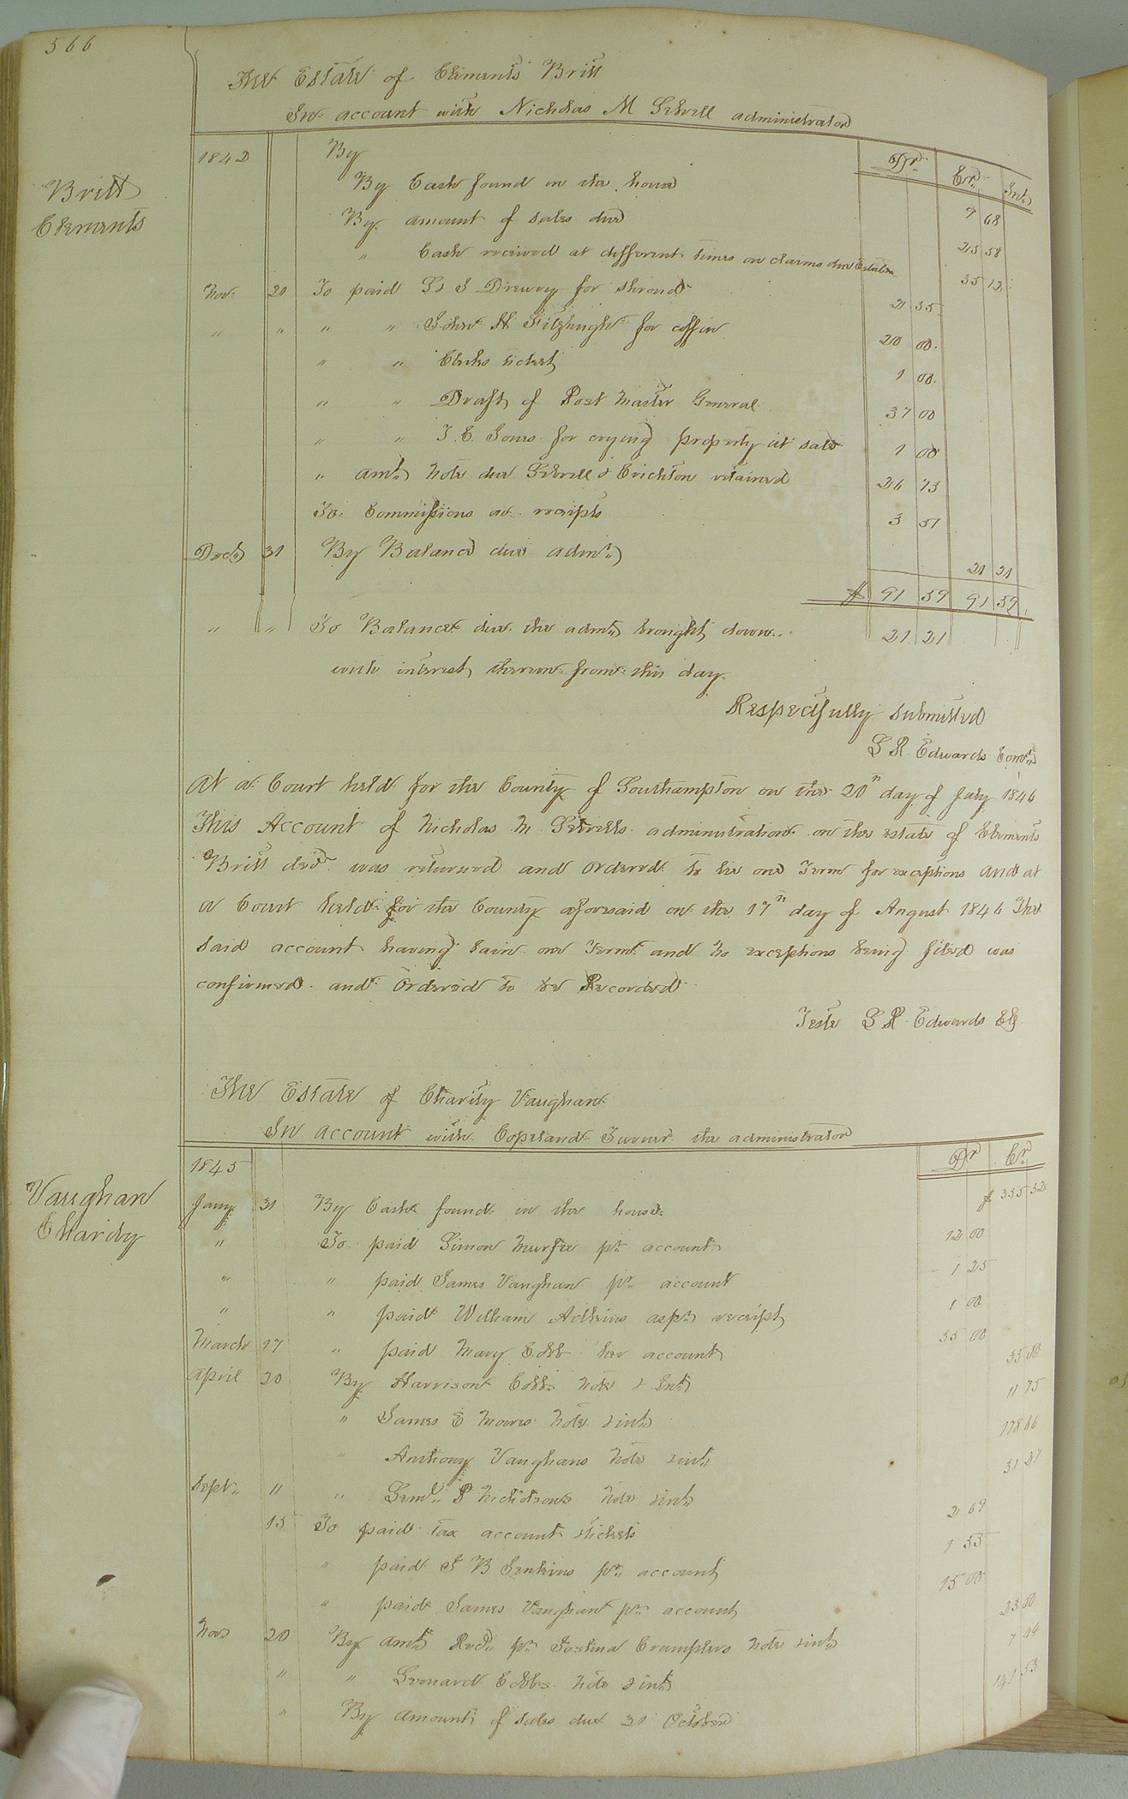 566
The Estate of Clements Britt
In account with Nicholas M Sebrell administrator
Britt
Clements
1842 By Dr. Cr. Int.
By Cash found in the house 7 68
By amount of sales due 25 58
" Cash received at different times on claims due Estate 35 12
Nov. 20 To paid Drewry for shroud 2 35
" " " " John H Fitzhugh for coffin 20 00
" " Clerks ticket 1 00
" " Draft of Post Master General 37 00
" " for crying property at sale 1 00
" amt. note due Sebrell & Crichton retained 26 73
To Commissions on receipts 3 51
Dec. 31 By Balance due admr. 21 21
$ 91 59 91 59
" " To Balance due the admr. brought down 21 21
with interest thereon from this day
Respectfully submitted
L R Edwards Comr.
At a Court held for the County of Southampton on the 20th day of July 1846
This Account of Nicholas M Sebrells administration on the estate of Clements
Britt decd. was returned and ordered to lie one Term for exceptions and at
a Court held for the County aforesaid on the 17th day of August 1846 The
said account having lain one Term and no exceptions being filed was
confirmed and ordered to be Recorded
Teste L R Edwards Clk
The Estate of Charity Vaughan
In account with Copeland the administrator
Vaughan
Charity
1845 Dr Cr.
Jany 31 By Cash found in the house $ 355 52
" To paid Simon Murfee pr. account 12 00
" " paid James Vaughan pr. account 1 25
" " paid William Adkins as pr. receipt 1 00
March 17 " paid Mary Cobb her account 35 00
April 30 By Harrison Cobbs note & Int. 35
" James E note & int. 11 75
" Anthony Vaughans note & int. 178 66
Sept. 11 " note & int. 31
15 To paid tax account tickets 2 69
" paid J B Jenkins pr. account 1 55
" paid James Vaughan pr. account 15 00
Nov. 20 By amt. Recd. pr. Joshua Cramplers note & int. 23
" " Leonard Cobbs note & int. 7 44
" By amount of sales due 31 October 141 53